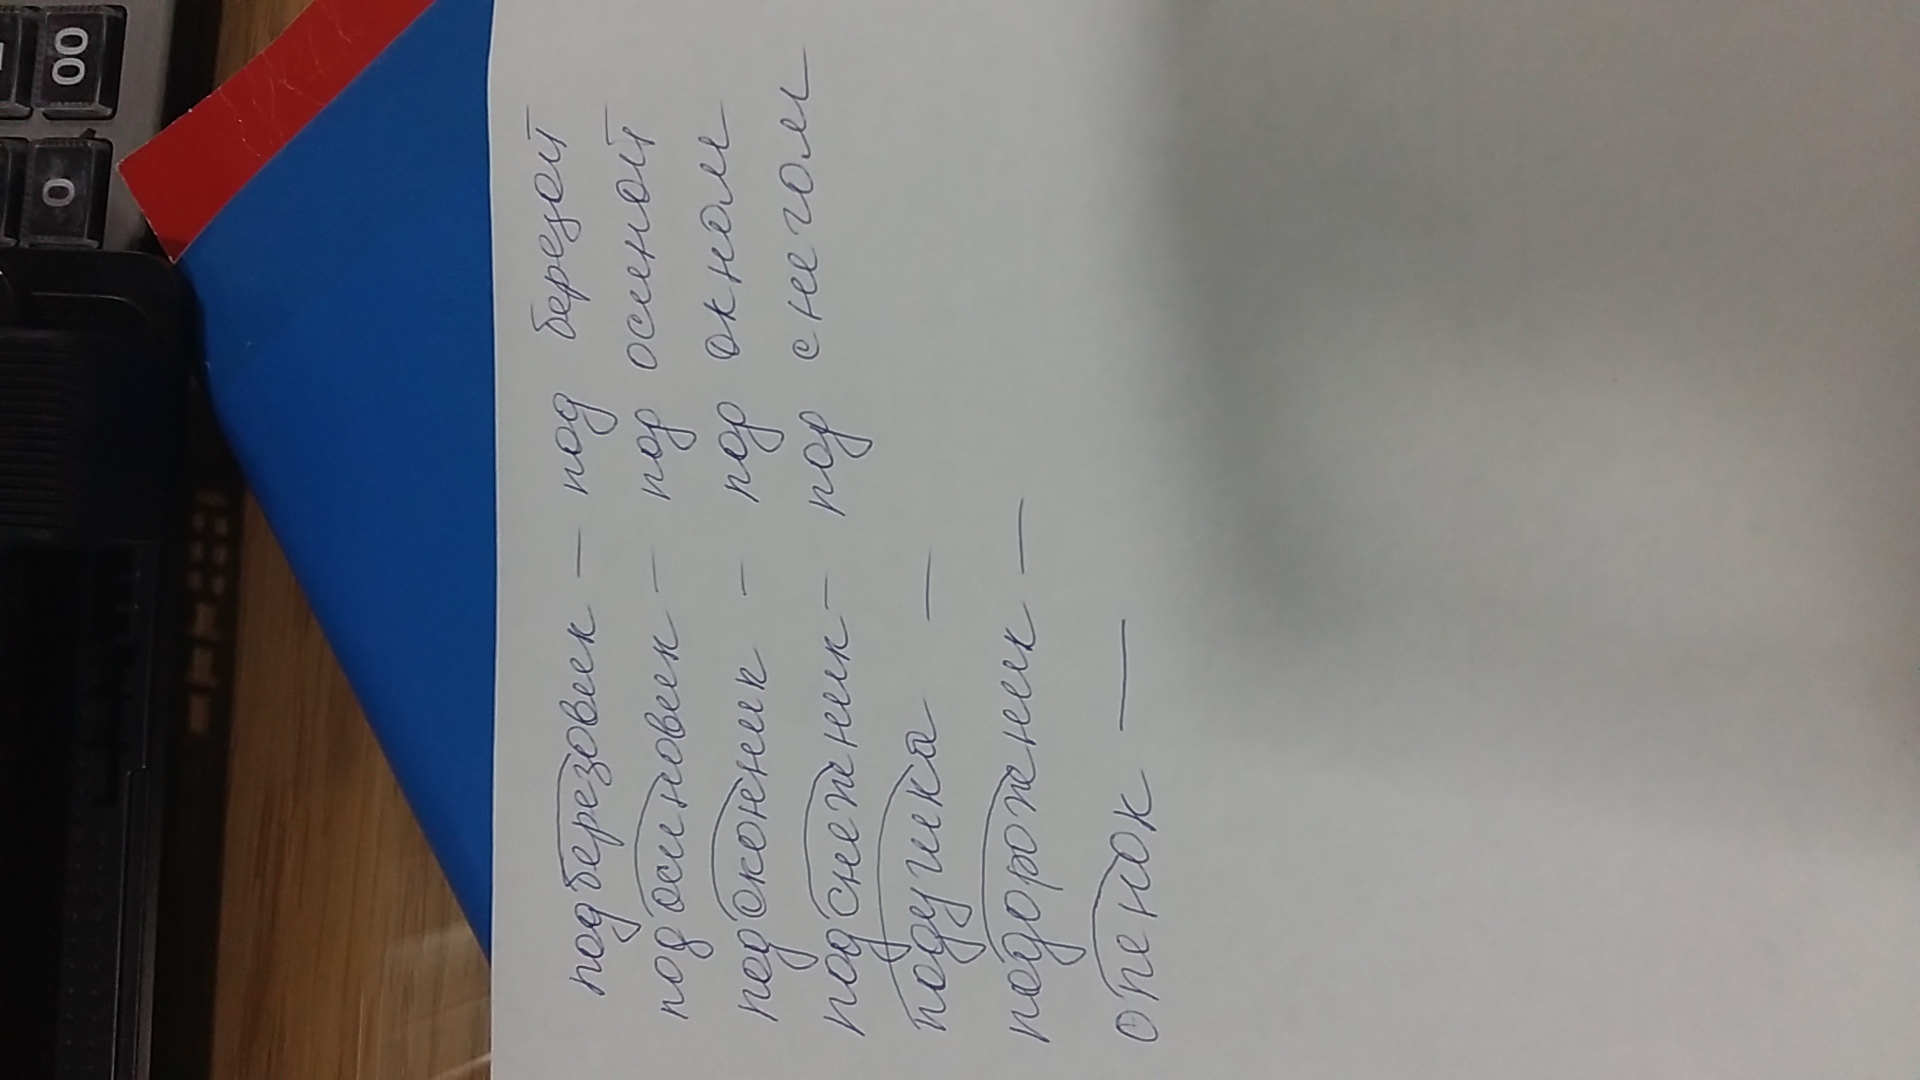 подберезовик – под березой
подосиновик – под осиной
подоконник – под окном
подснежник – под снегом
подушка –
подорожник –
опенок –
00
0